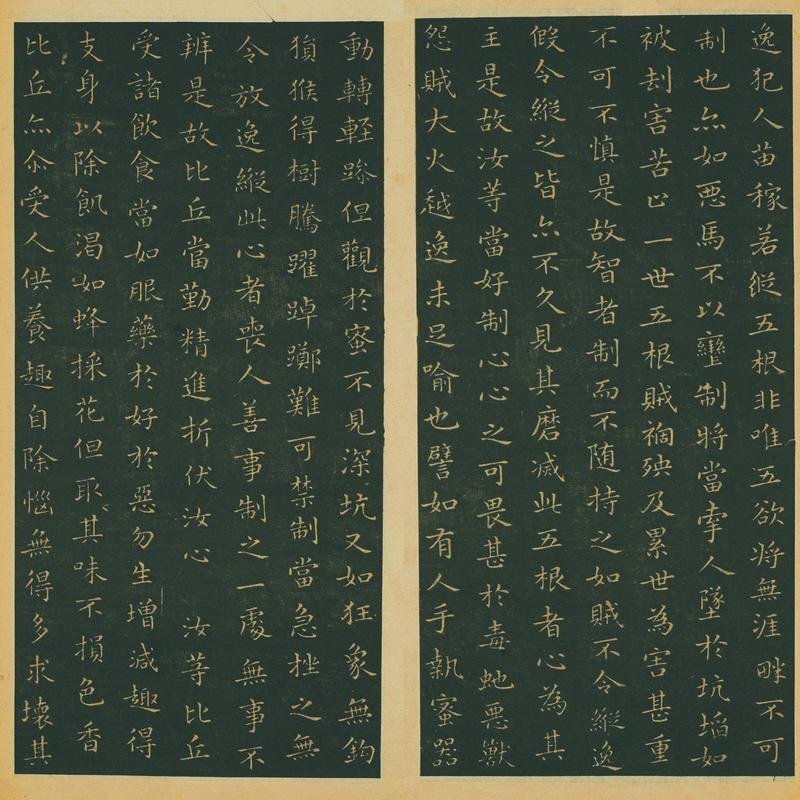 逸犯人苗稼若縱五根非唯五欲將無涯畔不可
制也亦如惡馬不以轡制將當牽人墜於坑埳如
被刦害苦止一世五根賊禍殃及累世為害甚重
不可不慎是故智者制而不随持之如賊不令縱逸
假令縱之皆亦不久見其磨滅此五根者心為其
主是故汝等當好制心心之可畏甚於毒虵惡獸
怨賊大火越逸未足喻也譬如有人手執蜜器
動轉輕躁但觀於蜜不見深坑又如狂象無鈎
猨猴得樹騰躍踔躑難可禁制當急挫之無
令放逸縱此心者喪人善事制之一處無事不
辦是故比丘當勤精進折伏汝心 汝等比丘
受諸飲食當如服藥於好於惡勿生增減趣得
支身以除飢渴如蜂採花但取其味不損色香
比丘亦尒受人供養趣自除惱無得多求壞其